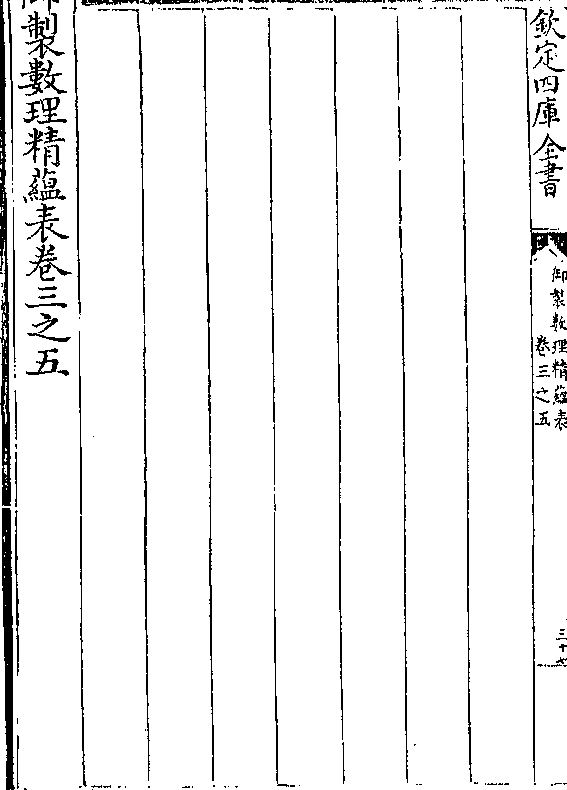 欽定四庫全書
御製數理精蘊表
卷三之五
御製數理精蘊表卷三之五